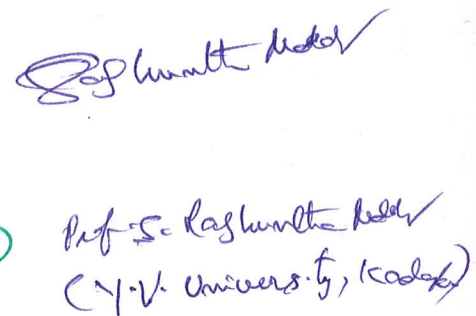 Raghunatha Reddy
Prof. S. Raghunatha Reddy
(Y.V. University, Kadapa)